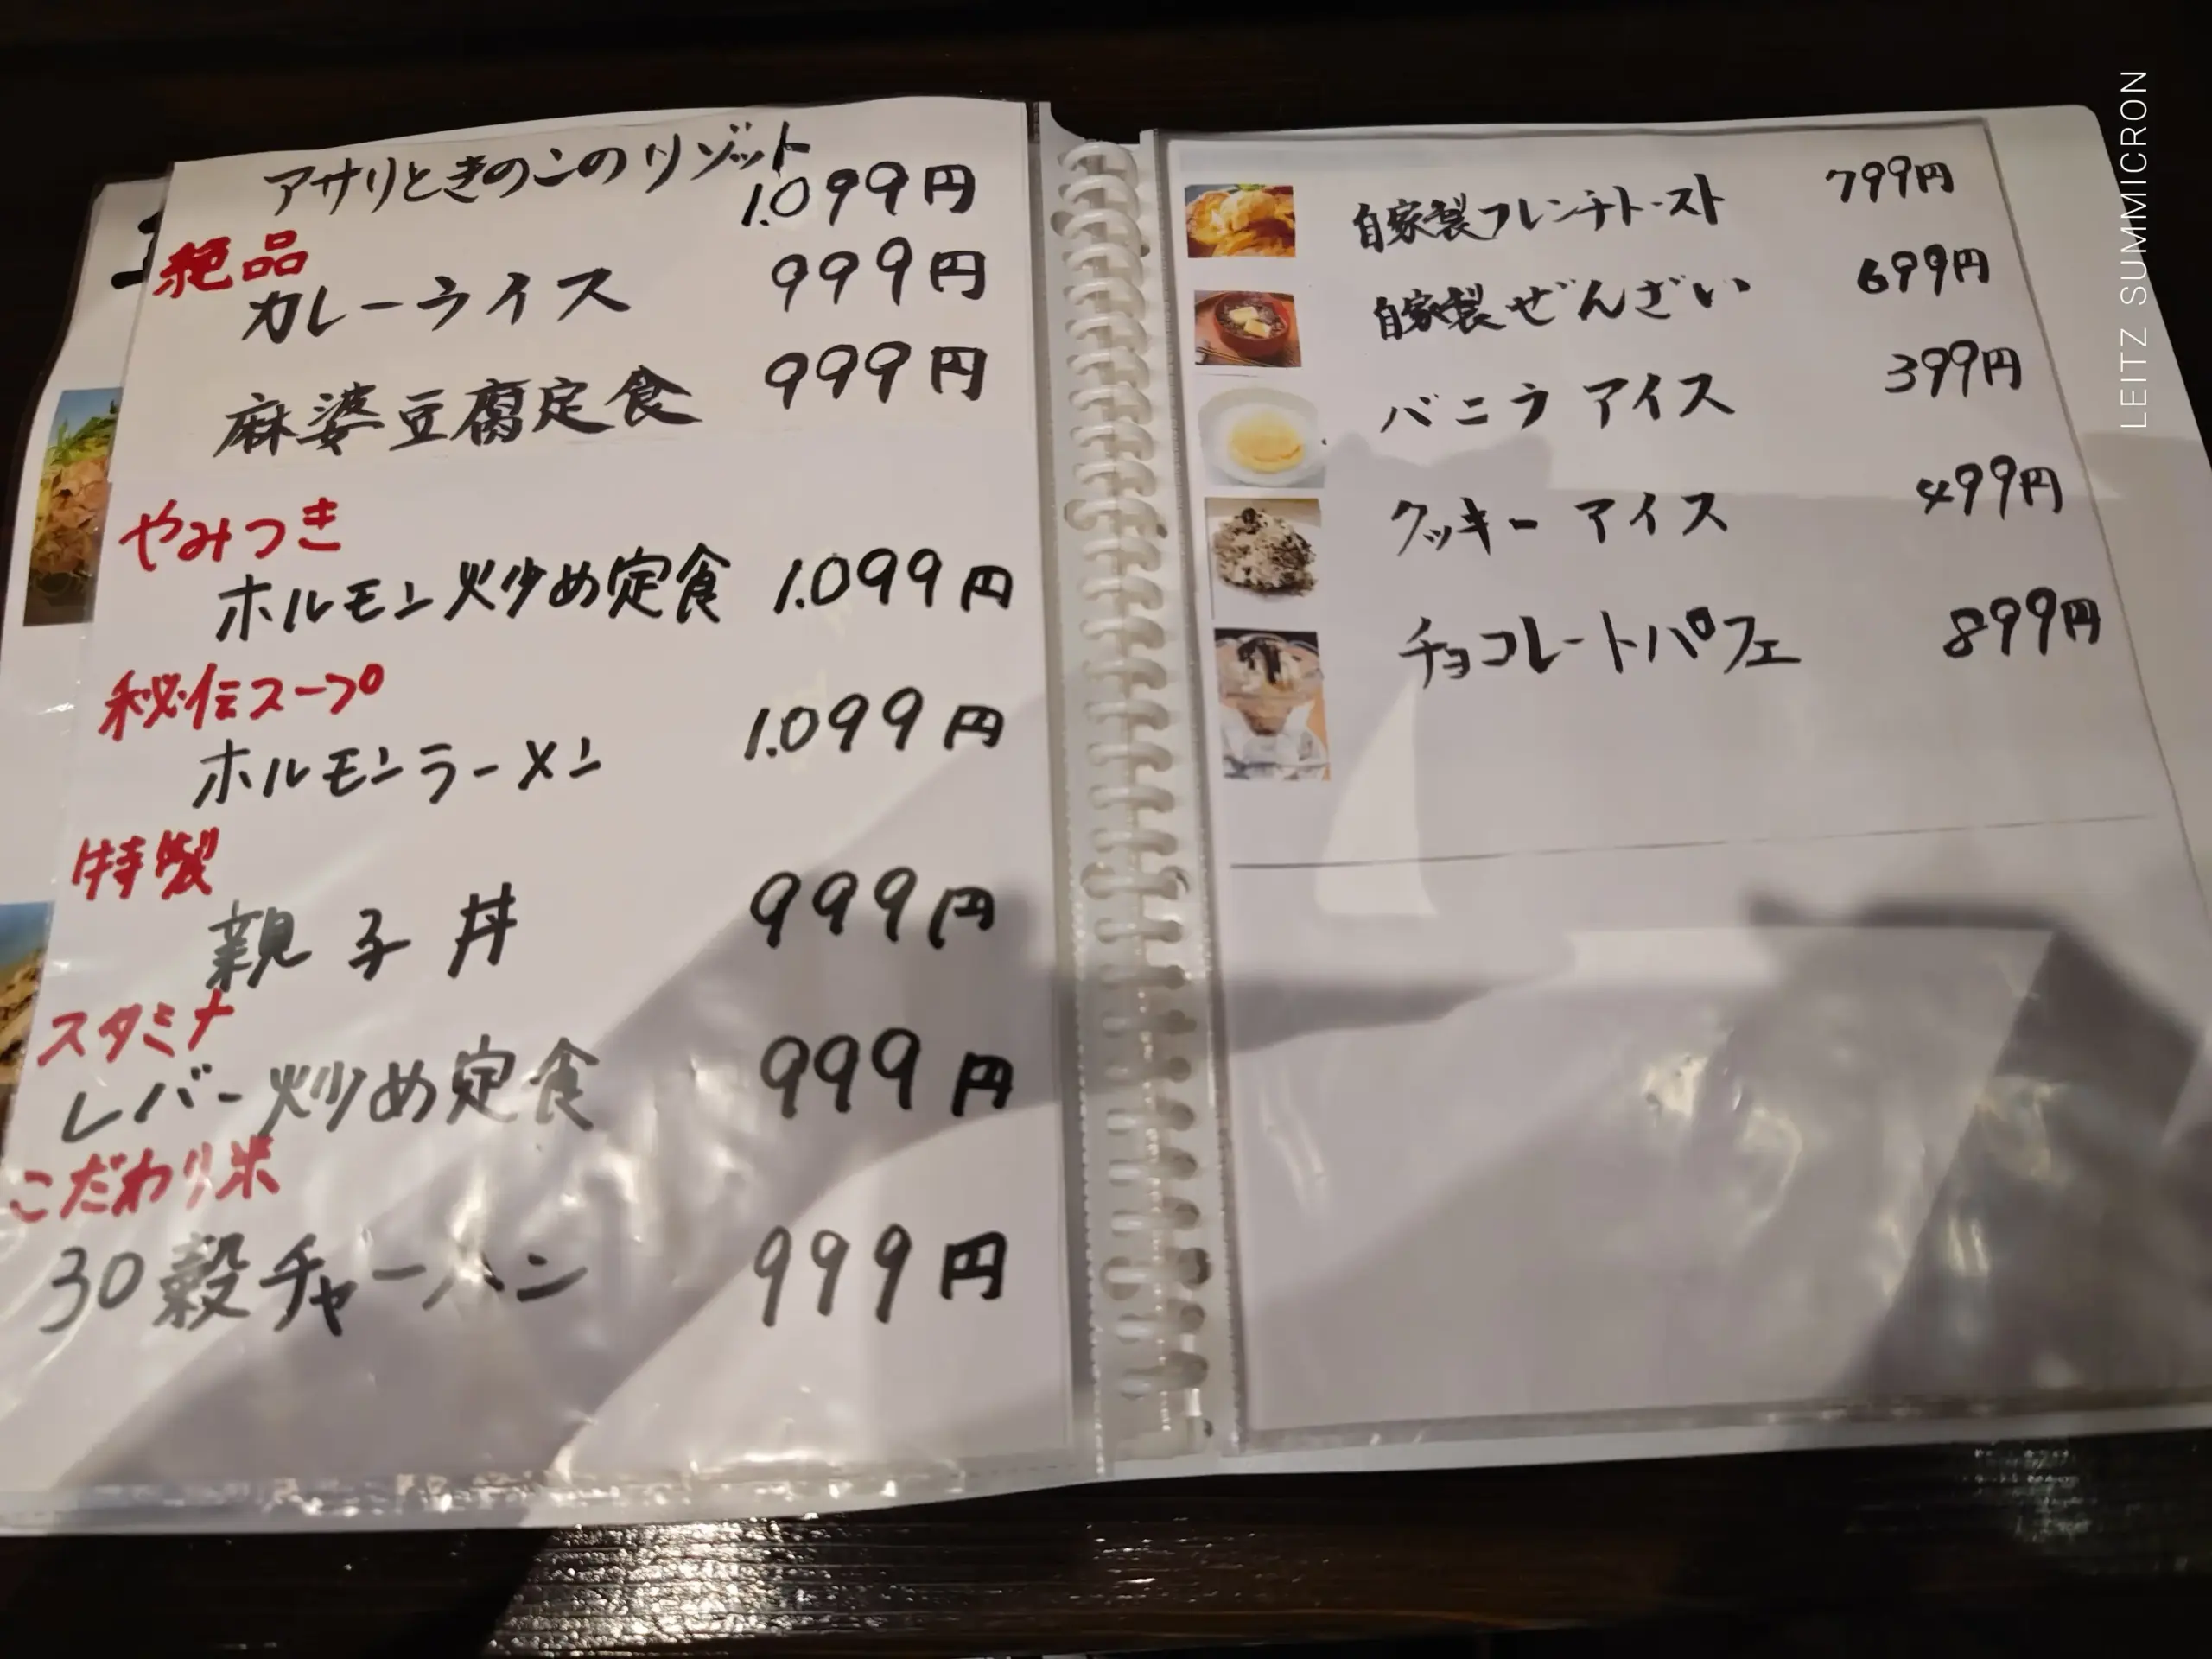 アサリときのこのリゾット
1.099円
絶品
カレーライス 999円
麻婆豆腐定食 999円
やみつき
ホルモン炒め定食 1.099円
秘伝スープ
ホルモンラーメン 1.099円
特製
親子丼 999円
スタミナ
レバー炒め定食 999円
こだわり米
30穀チャーハン 999円
自家製フレンチトースト 799円
自家製ぜんざい 699円
バニラアイス 399円
クッキーアイス 499円
チョコレートパフェ 899円
LEITZ SUMMICRON